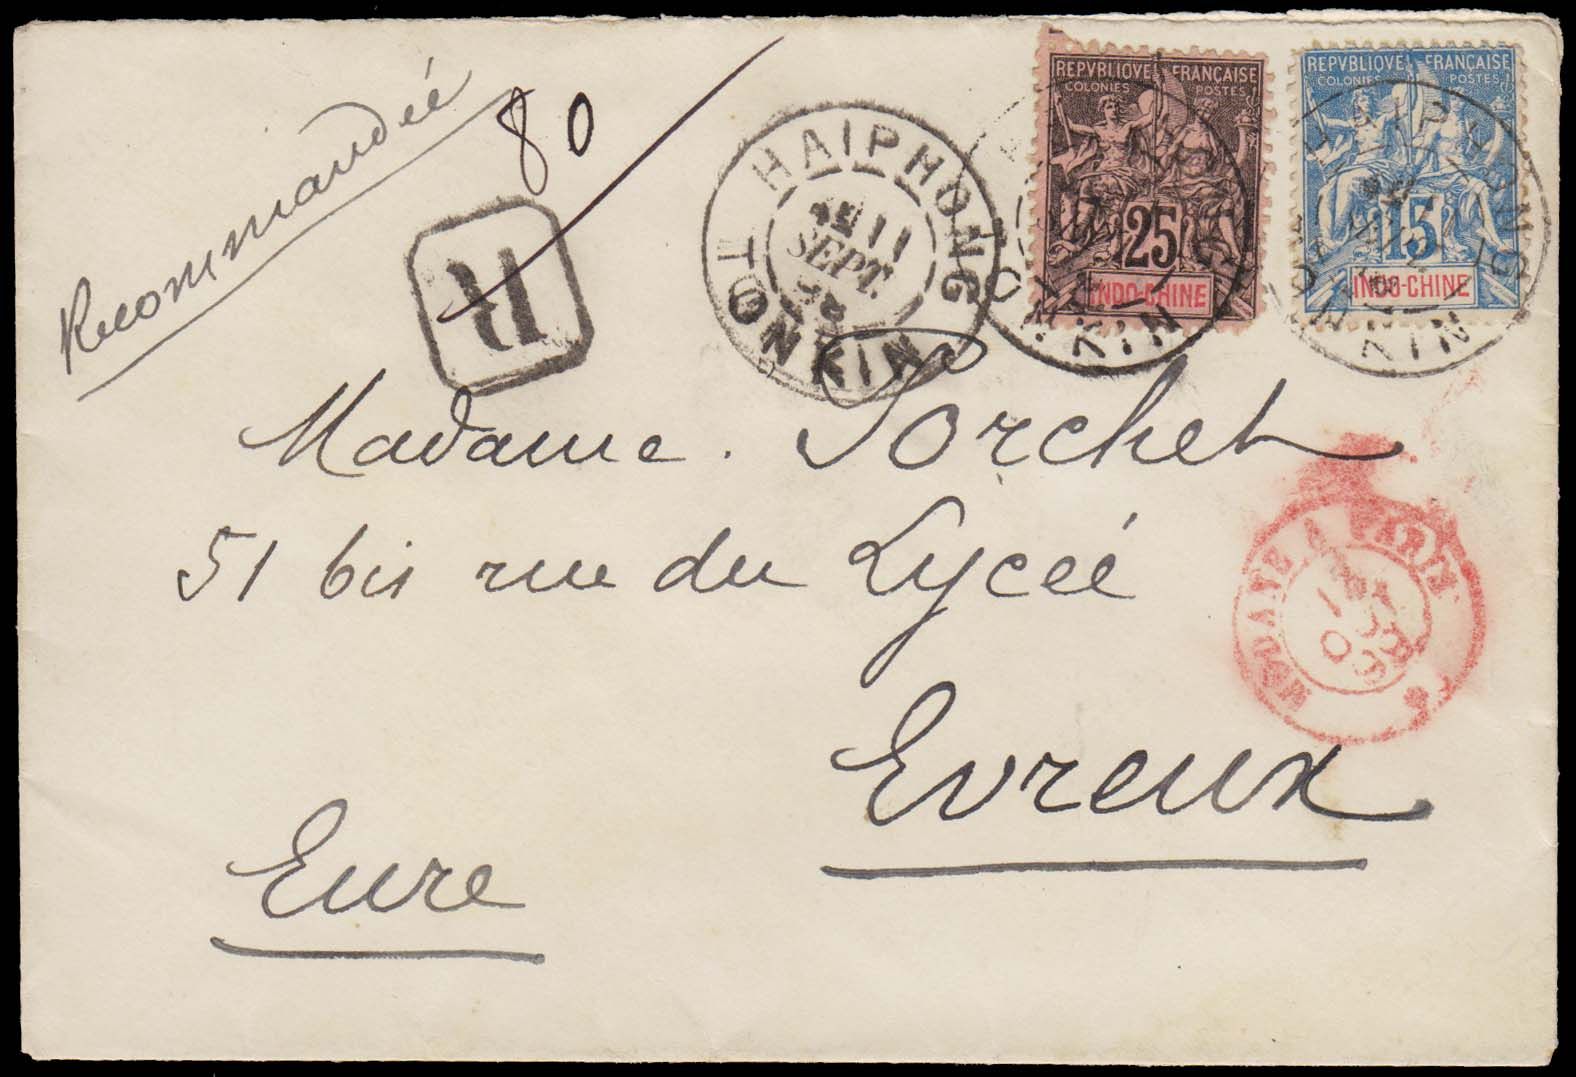 Recommandée
80
R
HAIPHONG
11
SEPT.
TONKIN
REPVBLIQVE FRANÇAISE
COLONIES POSTES
25
INDO-CHINE
REPVBLIQVE FRANÇAISE
COLONIES POSTES
15
INDO-CHINE
HAIPHONG
TONKIN
Madame. Porchet
51 bis rue du Lycée
Evreux
Eure